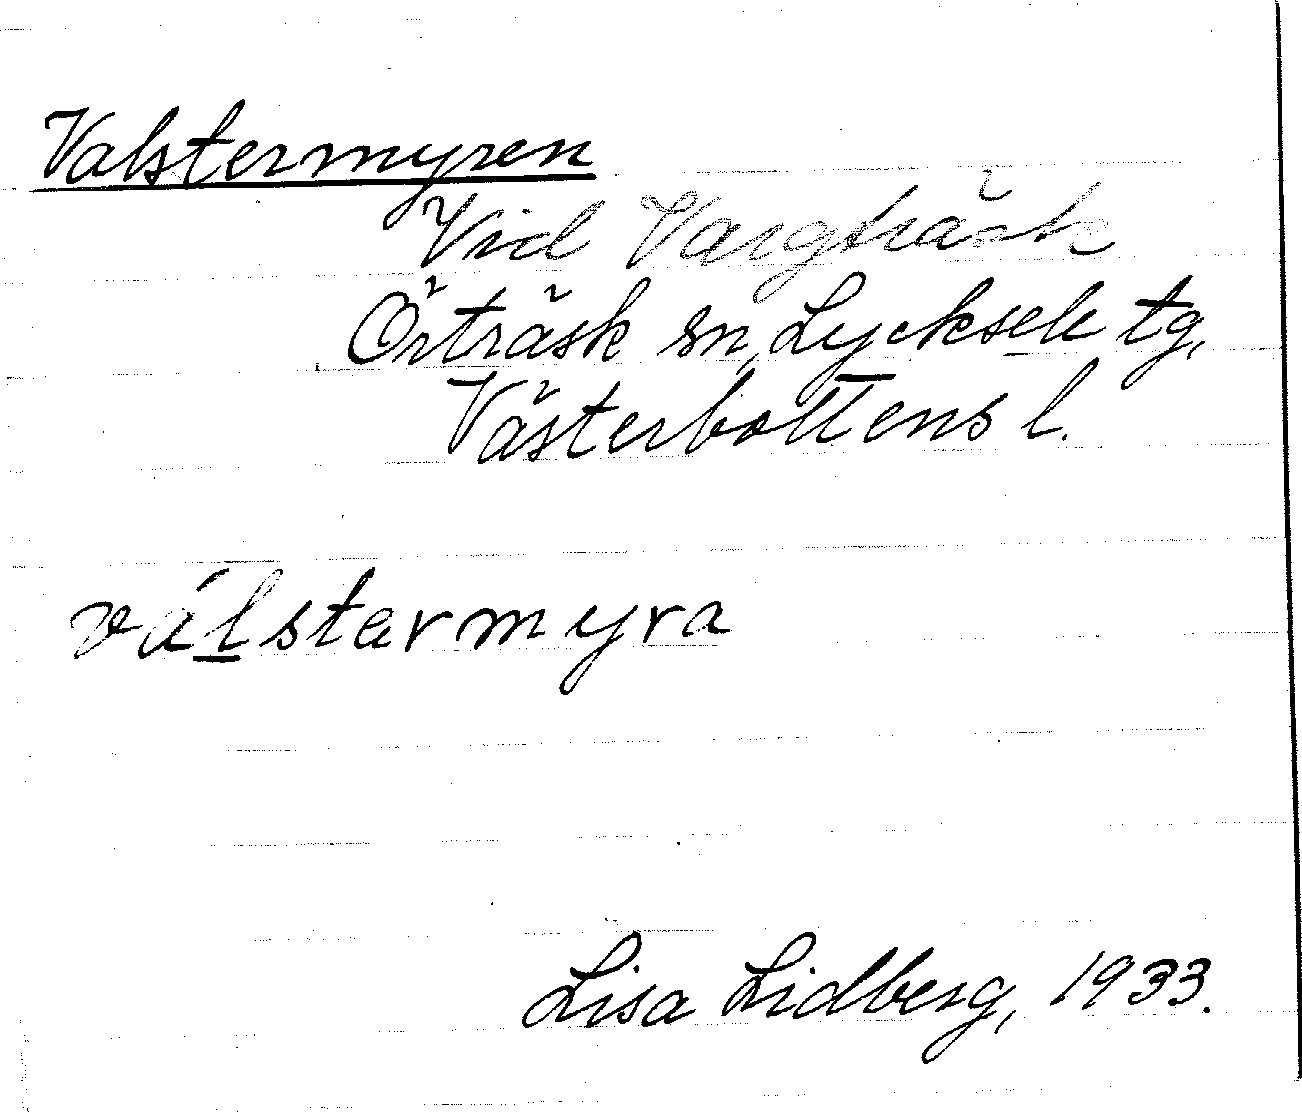 Valstermyren
Vid Vargträsk
Örträsk sn, Lycksele tg,
Västerbottens l.
válstermyra
Lisa Lidberg, 1933.